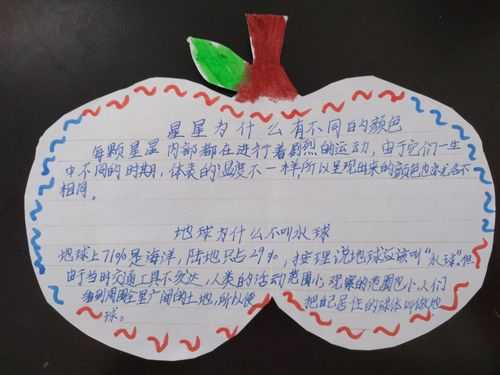 星星为什么有不同的颜色
每颗星星内部都在进行着剧烈的运动,由于它们一生
中不同的时期,体表的温度不一样所以呈现出来的颜色也各不
相同。
地球为什么不叫水球
地球上71%是海洋,陆地只占29%,按理说地球应该叫“水球”。但
由于当时交通工具不发达,人类的活动范围小观察的范围也小,人们
看到周围全是广阔的土地,所以便 把自己居住的球体叫做地
球。